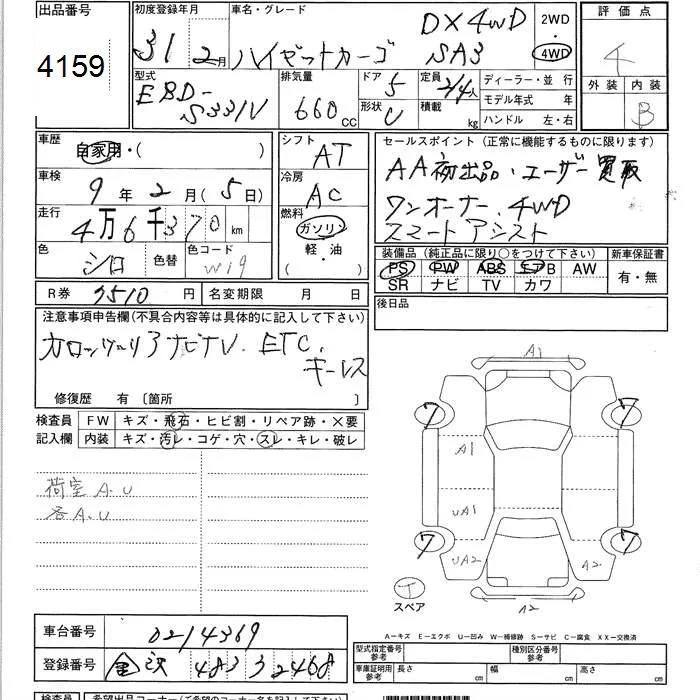 出品番号
4159
初度登録年月
31 2月
車名・グレード
ハイゼットカーゴ
DX 4WD
SA3
2WD
4WD
評価点
4
外装 内装
B
型式
EBD-
S331V
排気量
660 CC
ドア 5
形状 U
定員 2/4人
積載 kg
ディーラー・並行
モデル年式 年
ハンドル 左・右
車歴
自家用・( )
車検
9年2月(5日)
走行
4万6千370 km
色
シロ
色替
色コード
W19
シフト
AT
冷房
AC
燃料
ガソリン
軽・油
( )
セールスポイント (正常に機能するものに限ります)
AA初出品・ユーザー買取
ワンオーナー. 4WD
スマートアシスト
装備品 (純正品に限り○をつけて下さい)
PS PW ABS エアB AW
SR ナビ TV カワ
新車保証書
有・無
R券 7510円
名変期限 月 日
後日品
注意事項申告欄(不具合内容等は具体的に記入して下さい)
カロッツェリアナビTV. ETC.
キーレス
修復歴 有 〔箇所 〕
検査員
記入欄
FW キズ・飛石・ヒビ割・リペア跡・×要
内装 キズ・汚レ・コゲ・穴・スレ・キレ・破レ
荷室 A.U
各A.U
A1
ワ ワ
A1
UA1
ワ UA2 A2 ワ
T
スペア
A2
A―キズ E―エクボ U―凹み W―補修跡 S―サビ C―腐食 XX―交換済
車台番号
0214369
登録番号
金沢 483 う 2468
型式指定番号
参考
種別区分番号
参考
車庫証明用
参考
長さ cm
幅 cm
高さ cm
検査員
希望出品コーナー(ご希望のコーナー名を記入下さい)